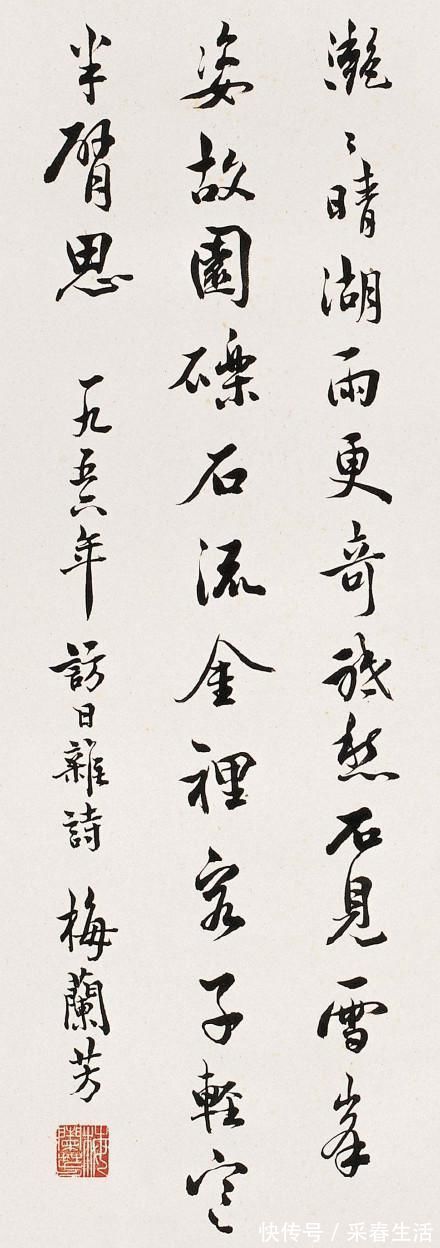 灧々晴湖雨更奇祗愁不見雪峯
姿故園礫石流金裡客子輕寒
半臂思 一九五六年 訪日雜詩 梅蘭芳
快传号 / 采春生活